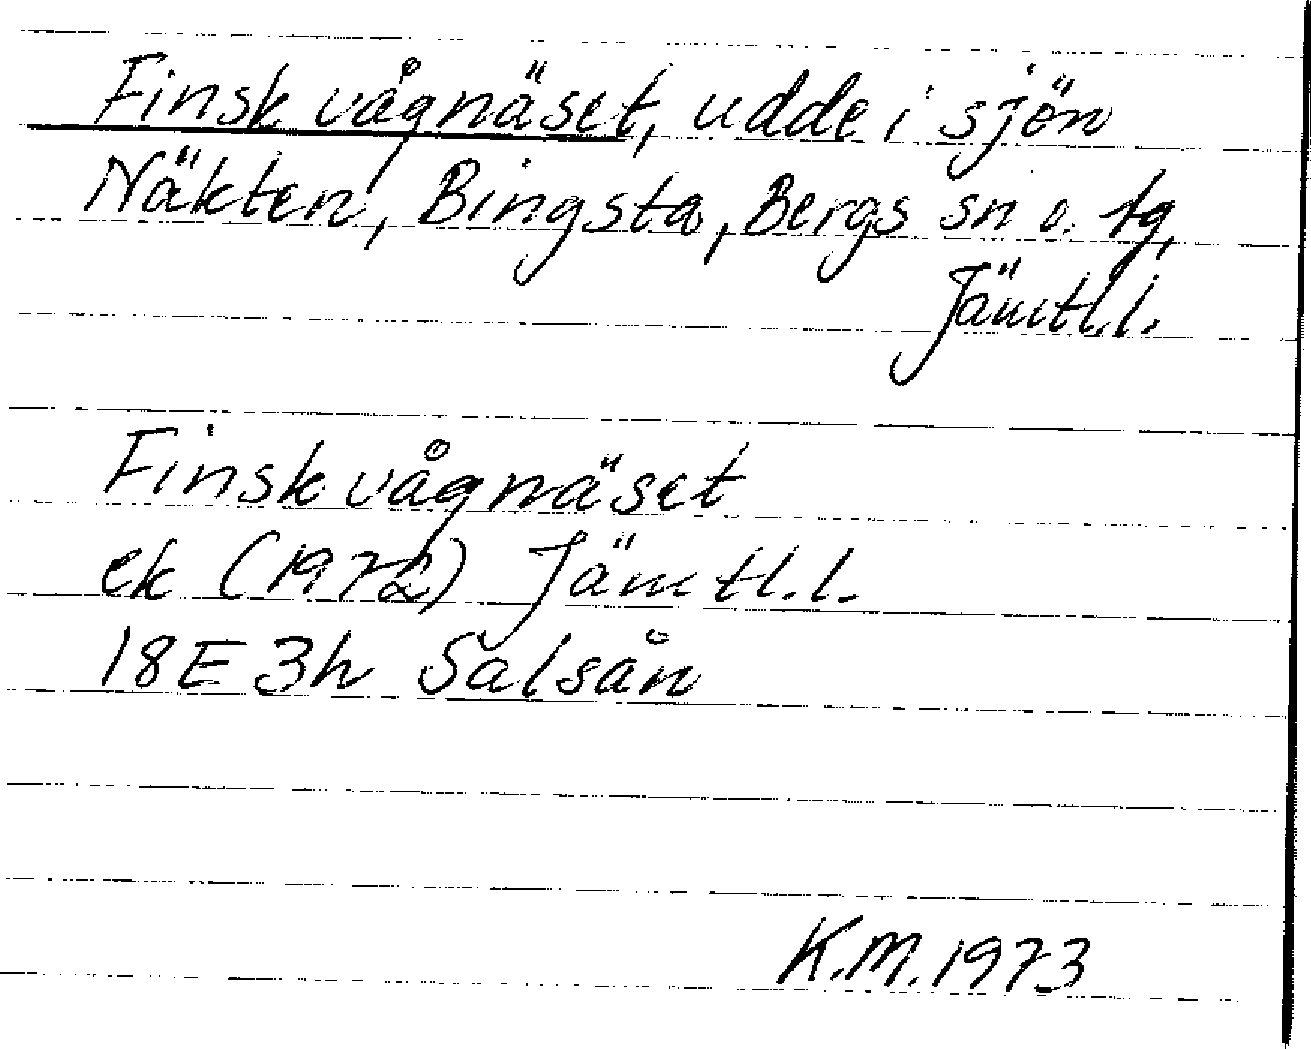 Finskvågnäset, udde i sjön
Näkten, Bingsta, Bergs sn o. tg,
Jämtl.l.
Finskvågnäset
ek (1972) Jämtl.l.
18E 3h Salsån
K.M. 1973